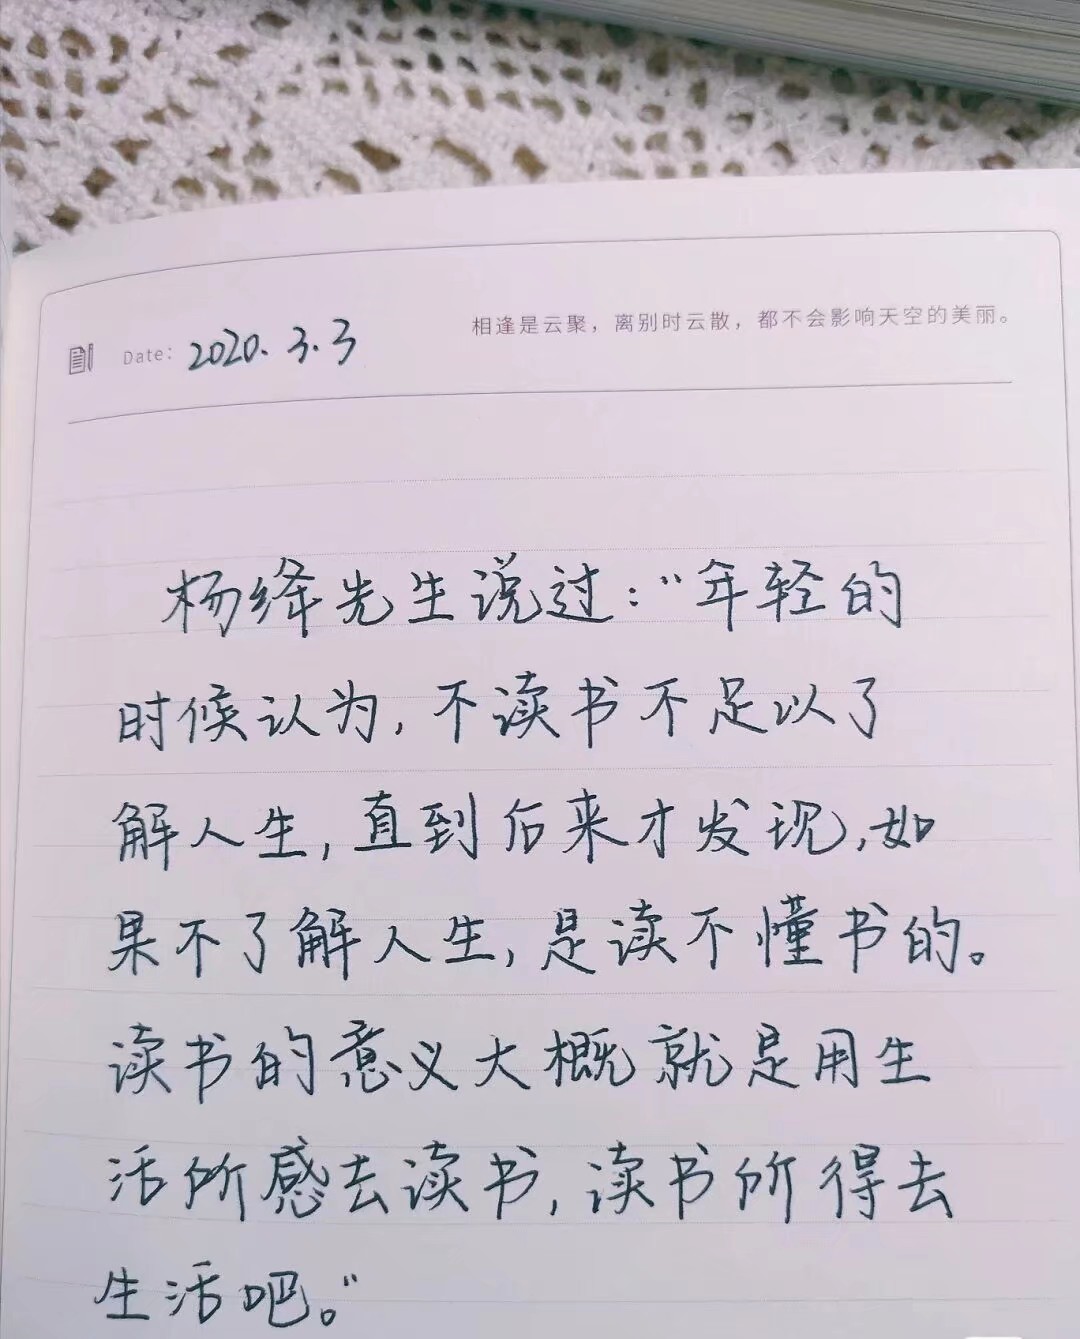 相逢是云聚，离别时云散，都不会影响天空的美丽。
Date: 2020.3.3
杨绛先生说过：“年轻的
时候认为，不读书不足以了
解人生，直到后来才发现，如
果不了解人生，是读不懂书的。
读书的意义大概就是用生
活所感去读书，读书所得去
生活吧。”